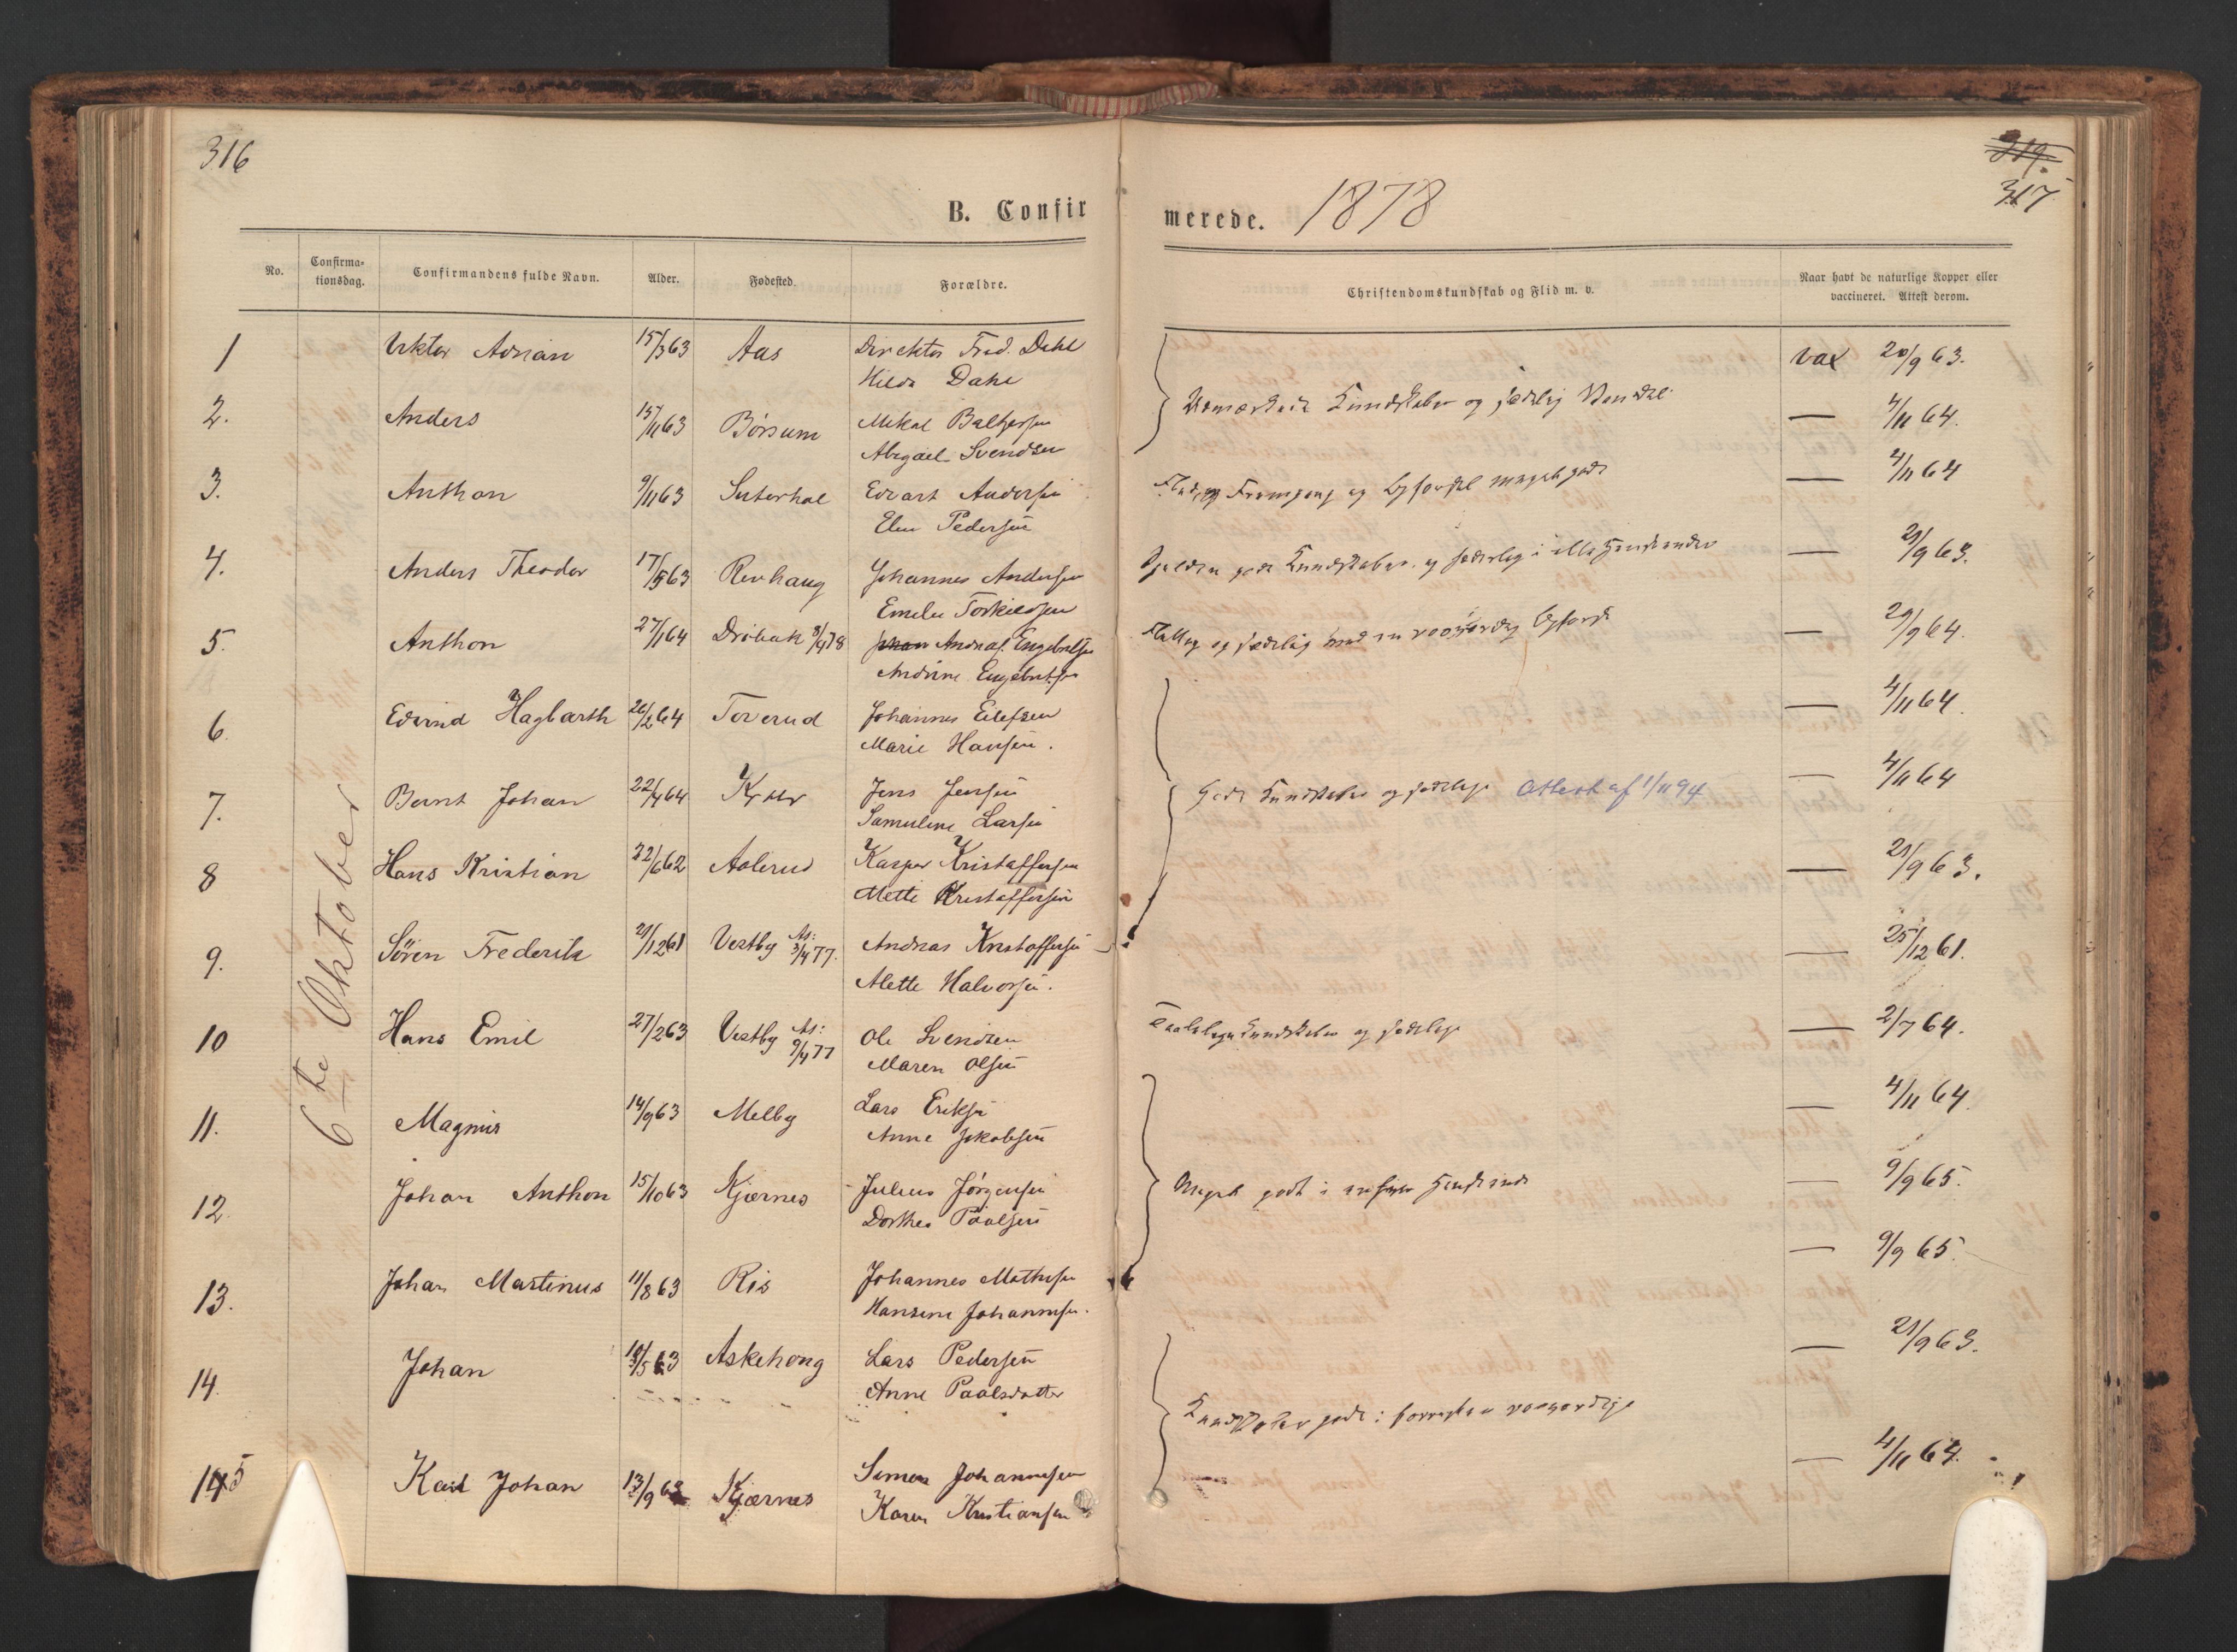 316
319.
317
B. Confirmerede. 1878
No.
Confirma-
tionsdag.
Confirmandens fulde Navn.
Alder.
Fødested.
Forældre.
Christendomskundskab og Flid m. v.
Naar havt de naturlige Kopper eller
vaccineret. Attest derom.
6te Oktober
1 Viktor Adrian 15/3 63 Aas Direktør Fred. Dahl vax 20/9 63.
Hilda Dahl
Udmærkede Kundskaber og sædelig Vandel
2. Anders 15/11 63 Børsum Mikal Baltzersen — 4/11 64.
Abigael Svendsen
3. Anthon 9/11 63 Edvart Andersen — 4/11 64
Elen Pedersen
Flid, og Fremgang og Opførsel meget godt
4. Anders Theodor 17/5 63 Revhaug Johannes Andersen — 21/9 63.
Emelie Torkildsen
gode Kundskaber og sædelig i alle Henseender
5. Anthon 27/1 64 Drøbak 8/4 78 Andreas Engebretsen — 29/9 64.
Andrine Engebretsen
Flittig og sædelig med en rosværdig Opførsel
6. Edvind Hagbarth 26/2 64 Toverud Johannes Eilefsen — 4/11 64.
Marie Hansen.
7. Bernt Johan 22/4 64 Jens Jensen — 4/11 64
Samuline Larsen
Gode Kundskaber og sædelige Attest af 1/11 94
8 Hans Kristian 22/6 62 Aalerud Kasper Kristoffersen — 21/9 63.
Mette Kristoffersen
9. Søren Frederik 21/12 61 Vestby At: 3/4 77. Andreas Kristoffersen — 25/12 61.
Alette Halvorsen.
10 Hans Emil 27/2 63 Vestby At: 9/4 77 Ole Svendsen — 2/7 64.
Maren Olsen
Taalelige Kundskaber og sædelige
11. Magnus 14/9 63 Melby Lars Eriksen — 4/11 64.
Anne Jakobsen
12. Johan Anthon 15/10 63 Kjærnes Julius Jørgensen — 9/9 65.
Dorthea Paalsen
Meget godt i enhver Henseende
13. Johan Martinus 11/8 63 Ris Johannes Mathisen — 9/9 65.
Hansine Johannesen.
14. Johan 10/5 63 Askehoug Lars Pedersen — 21/9 63.
Anne Paalsdatter
Kundskaber gode i forresten rosværdige
15 Karl Johan 13/9 63 Kjærnes Simen Johannesen — 4/11 64.
Karen Kristiansen